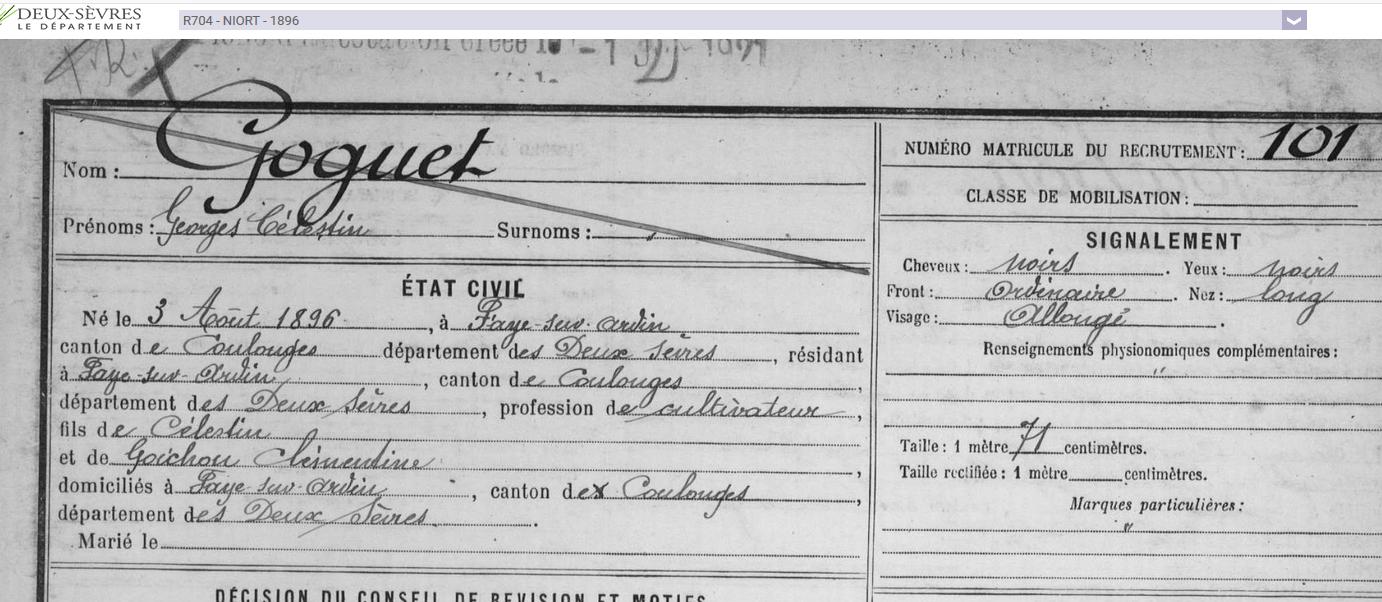 DEUX-SÈVRES
LE DÉPARTEMENT
R704 - NIORT - 1896
Nom : Goguet
Prénoms : Georges Célestin Surnoms :
ÉTAT CIVIL
Né le 3 Août 1896, à Faye-sur-Ardin
canton de Coulonges département des Deux Sèvres, résidant
à Faye-sur-Ardin, canton de Coulonges,
département des Deux Sèvres, profession de cultivateur,
fils de Célestin
et de Goichon Clémentine,
domiciliés à Faye-sur-Ardin, canton de Coulonges,
département des Deux Sèvres.
Marié le
DÉCISION DU CONSEIL DE REVISION ET MOTIFS
NUMÉRO MATRICULE DU RECRUTEMENT : 101
CLASSE DE MOBILISATION :
SIGNALEMENT
Cheveux : noirs. Yeux : noirs
Front : Ordinaire. Nez : long
Visage : Allongé.
Renseignements physionomiques complémentaires :
"
Taille : 1 mètre 71 centimètres.
Taille rectifiée : 1 mètre centimètres.
Marques particulières :
"